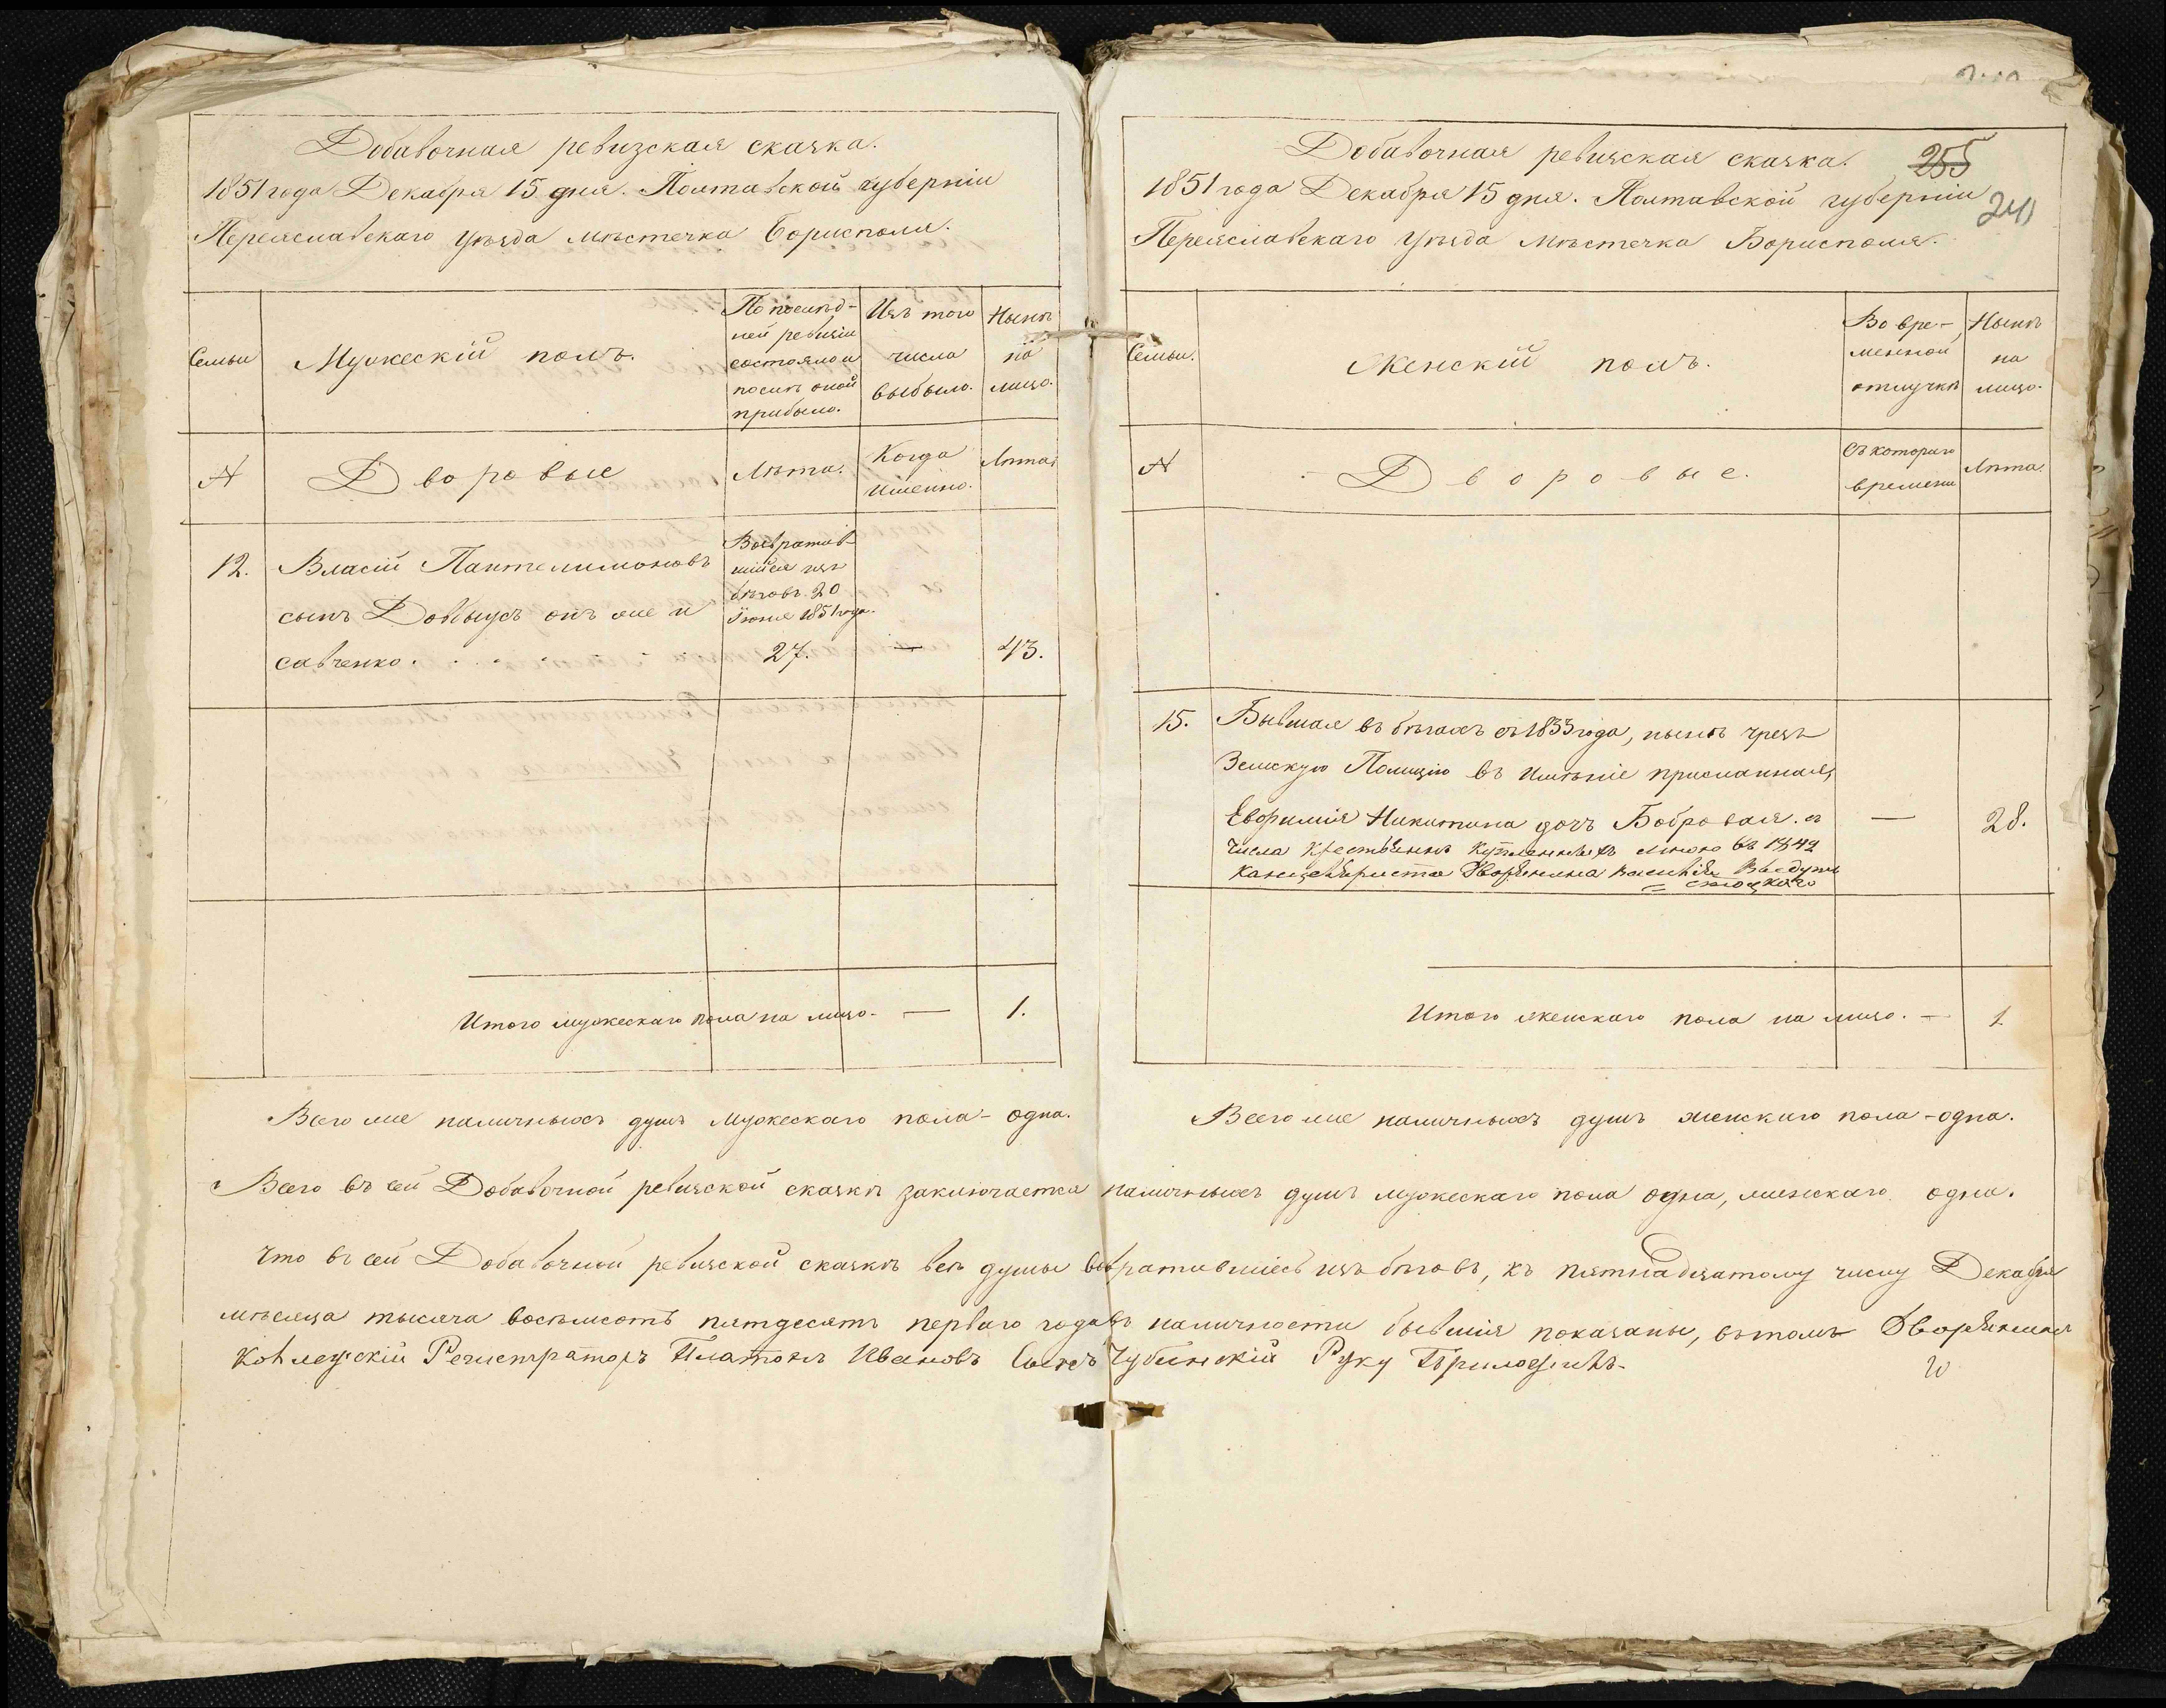 Добавочная ревизская сказка.
1851 года Декабря 15 дня. Полтавской губерніи
Переяславскаго уѣзда мѣстечка Борисполя.
Семьи
Мужескій полъ.
По послѣд-
ней ревизіи
состояло и
послѣ оной
прибыло.
Изъ того
числа
выбыло.
Нынѣ
на
лицо.
№
Дворовые
Лѣта.
Когда
именно.
Лѣта
12.
Власій Пантелимоновъ
сынъ Довбышъ онъ же и
савченко
Возвратив-
шійся изъ
бѣговъ 20
Іюня 1851 года.
27.
—
43.
Итого мужескаго пола на лицо - —
1.
Всего же наличныхъ душъ Мужескаго пола - одна.
255
241
Добавочная ревизская сказка.
1851 года Декабря 15 дня. Полтавской губерніи
Переяславскаго уѣзда мѣстечка Борисполя.
Семьи.
Женскій полъ.
Во вре-
менной
отлучкѣ
Нынѣ
на
лицо.
№
Дворовые.
Съ котораго
времени
Лѣта.
15.
Бывшая въ бѣгахъ съ 1833 года, нынѣ чрезъ
Земскую Полицію въ имѣніе присланная,
Евфимія Никитина дочъ Боброва я. съ
числа крестьянъ купленныхъ мною въ 1849
канцеляриста Дворянина
—
28.
Итого женскаго пола на лицо. —
1
Всего же наличныхъ душъ женскаго пола - одна.
Всего въ сей Добавочной ревизской сказкѣ заключается наличныхъ душъ мужескаго пола одна, женскаго одна.
Что въ сей Добавочной ревизской сказкѣ всѣ души возвратившіесь изъ бѣговъ, къ пятнадцатому числу Декабря
мѣсяца тысяча восемьсотъ пятдесятъ перваго года въ наличности бывшія показаны, вътомъ Дворянинъ
Колежскій Регистраторъ Платонъ Ивановъ Сынъ Чубинскій Руку Приложилъ-